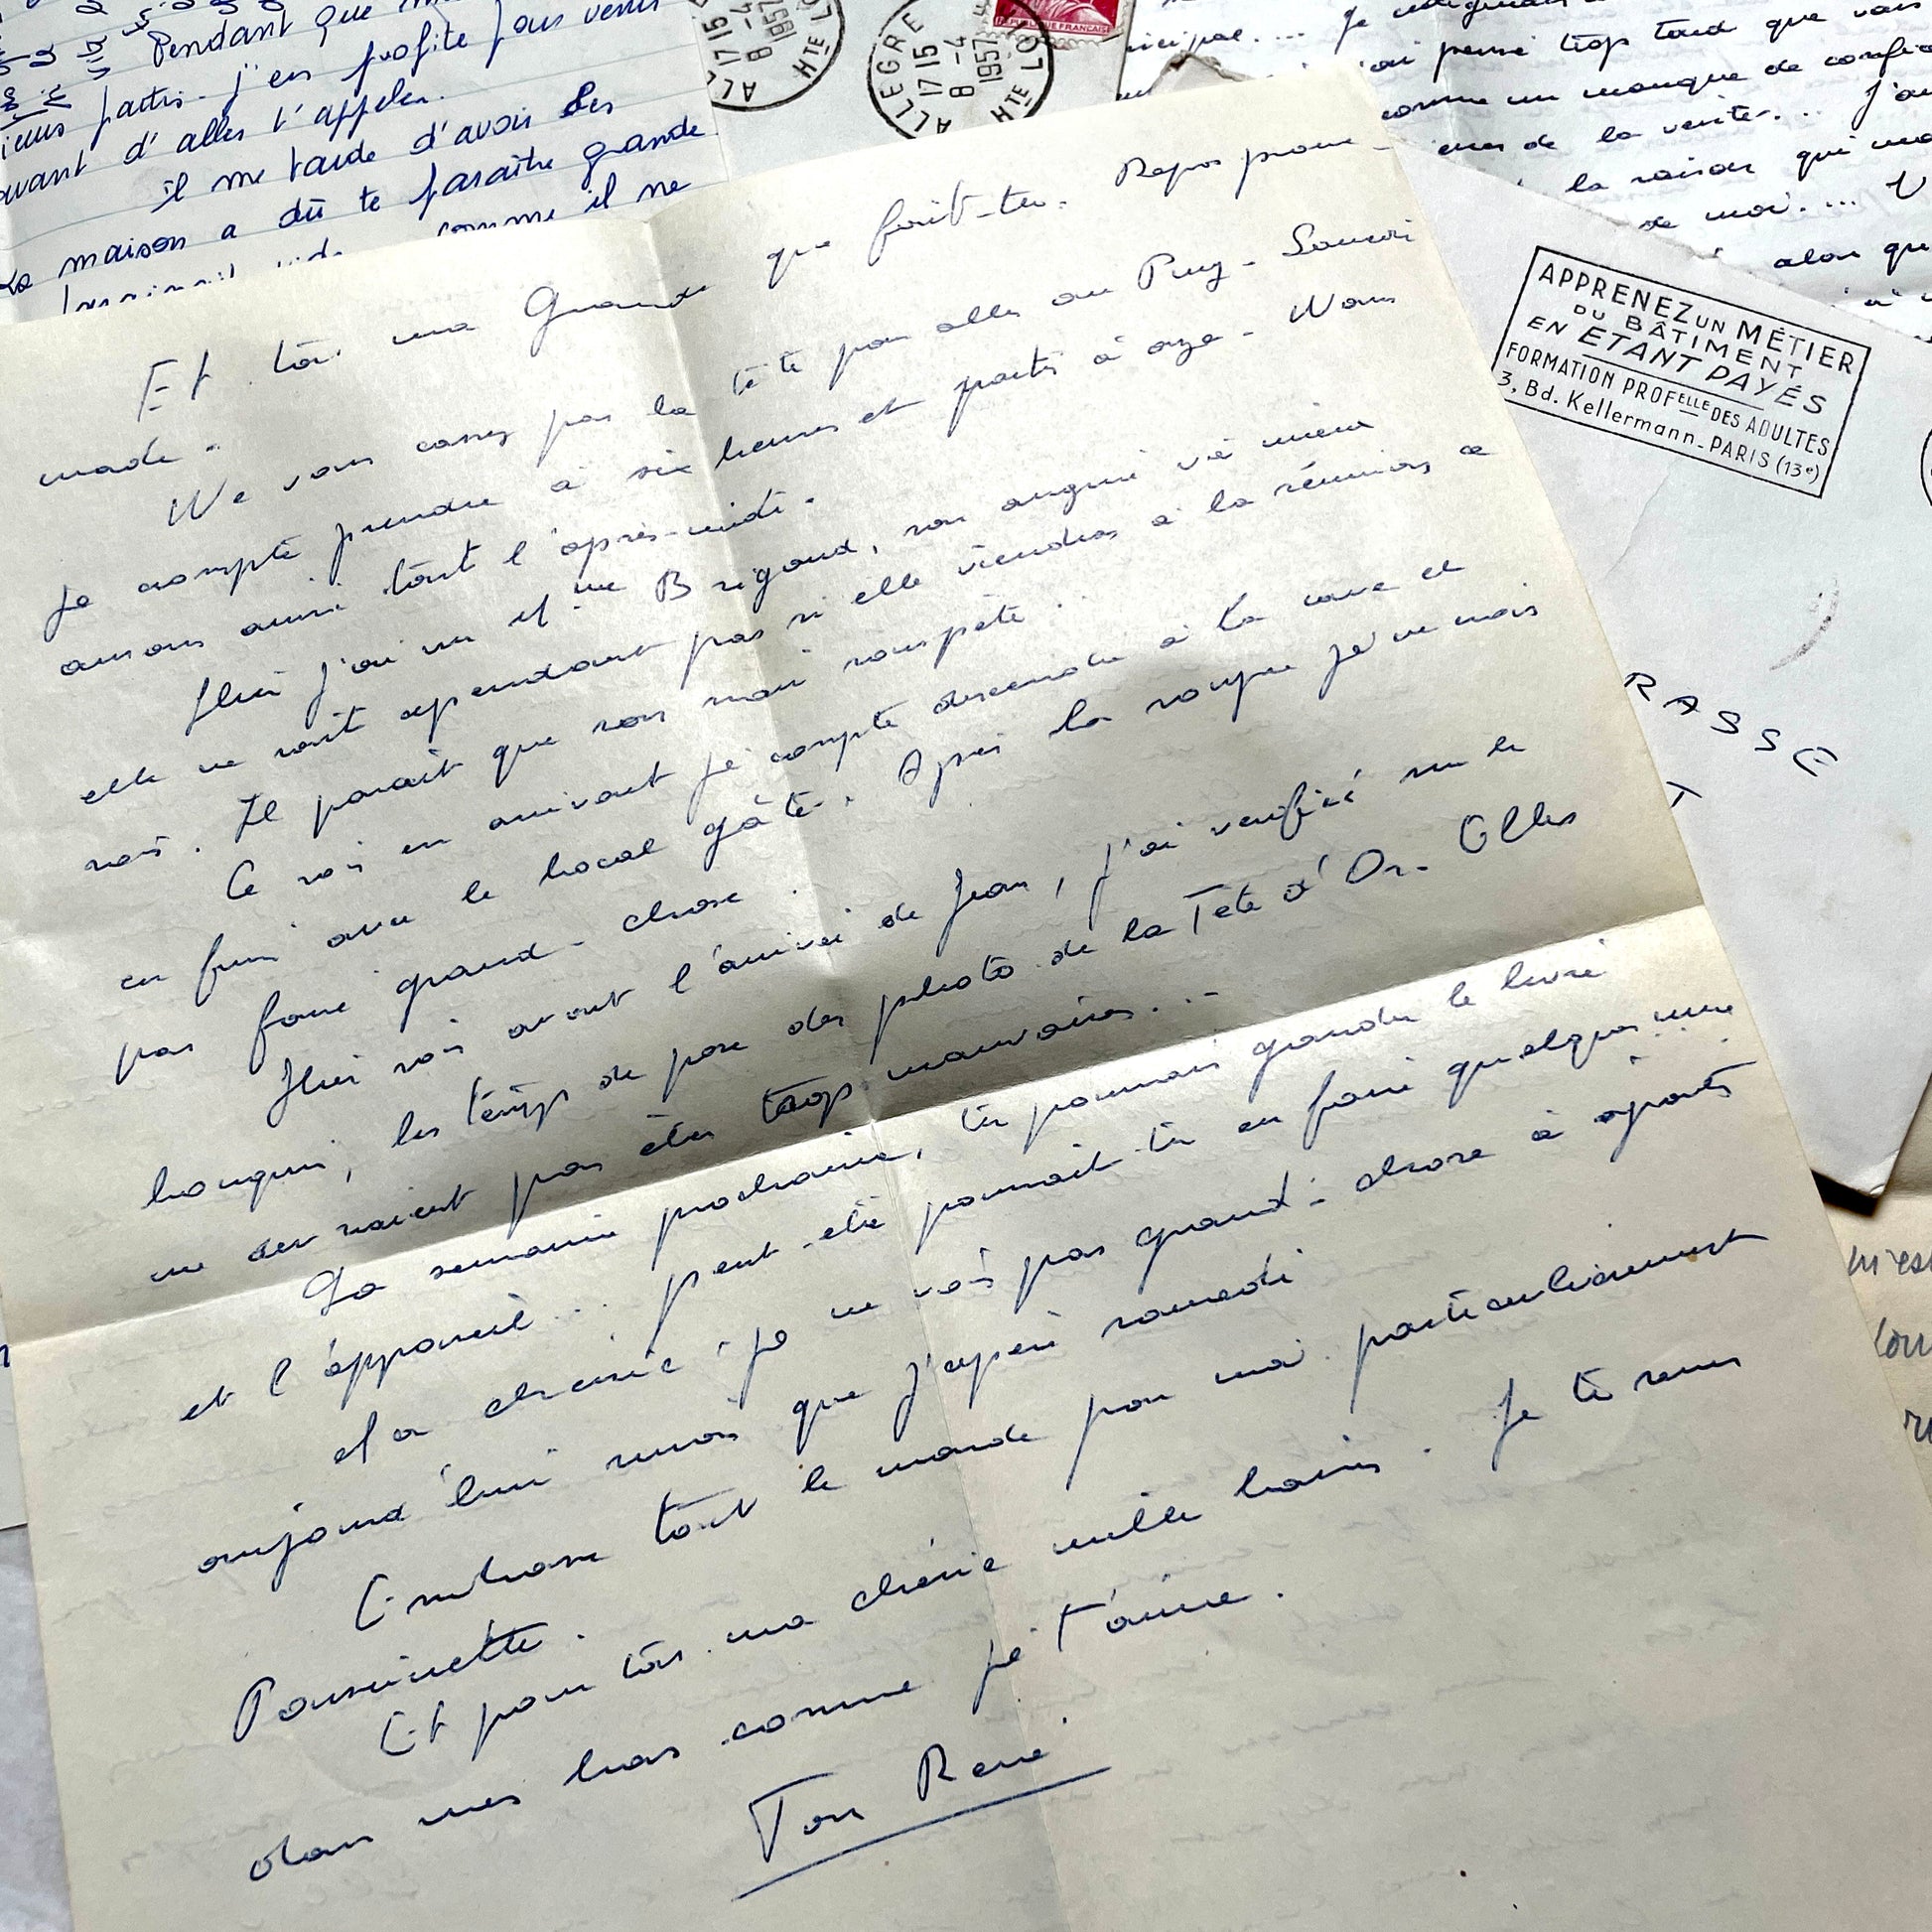 Pendant que
partis. j'en profite pour venir
avant d'aller t'appeler.
il me tarde d'avoir des
La maison a dû te paraître grande
comme il ne
ALLEGRE
17 15
8 - 4
1957
HTE LOI
ALLEGRE
17 15
8 - 4
1957
HTE LOI
REPUBLIQUE FRANÇAISE
pensé trop tard que
comme un manque de
de la vérité...
la raison qui
de moi....
alors qu
APPRENEZ UN MÉTIER
DU BÂTIMENT
EN ETANT PAYÉS
FORMATION PROFELLE DES ADULTES
3, Bd. Kellermann - PARIS (13e)
RASSE
T
Et toi. ma Grande que fait-tu. Repos prome-
nade.
Ne vous cassez pas la tête pour aller au Puy - Samedi
Je compte prendre à six heures et partir à onze - Nous
aurons ainsi tout l'après-midi.
Hier j'ai vu Mme Brigoud, son angine va mieux
elle ne sait cependant pas si elle viendra à la réunion ce
soir. Il parait que son mari rouspète.
Ce soir en arrivant je compte descendre à la cave et
en finir avec le local gâté. Après la soupe je ne vais
pas faire grand-chose.
Hier soir avant l'arrivée de Jean, j'ai vérifié sur le
bouquin, les temps de pose des photo de la Tête d'Or. Elles
ne devraient pas être trop mauvaises...
La semaine prochaine, tu pourrais prendre le livre
et l'appareil... peut-être pourrait-tu en faire quelques unes
ma chérie. je ne vois pas grand-chose à ajouter
aujourd'hui sinon que j'espère samedi
Embrasse tout le monde pour moi. particulièrement
Poussinette.
Et pour toi. ma chérie mille baisers. Je te serre
dans mes bras comme je t'aime.
Ton René